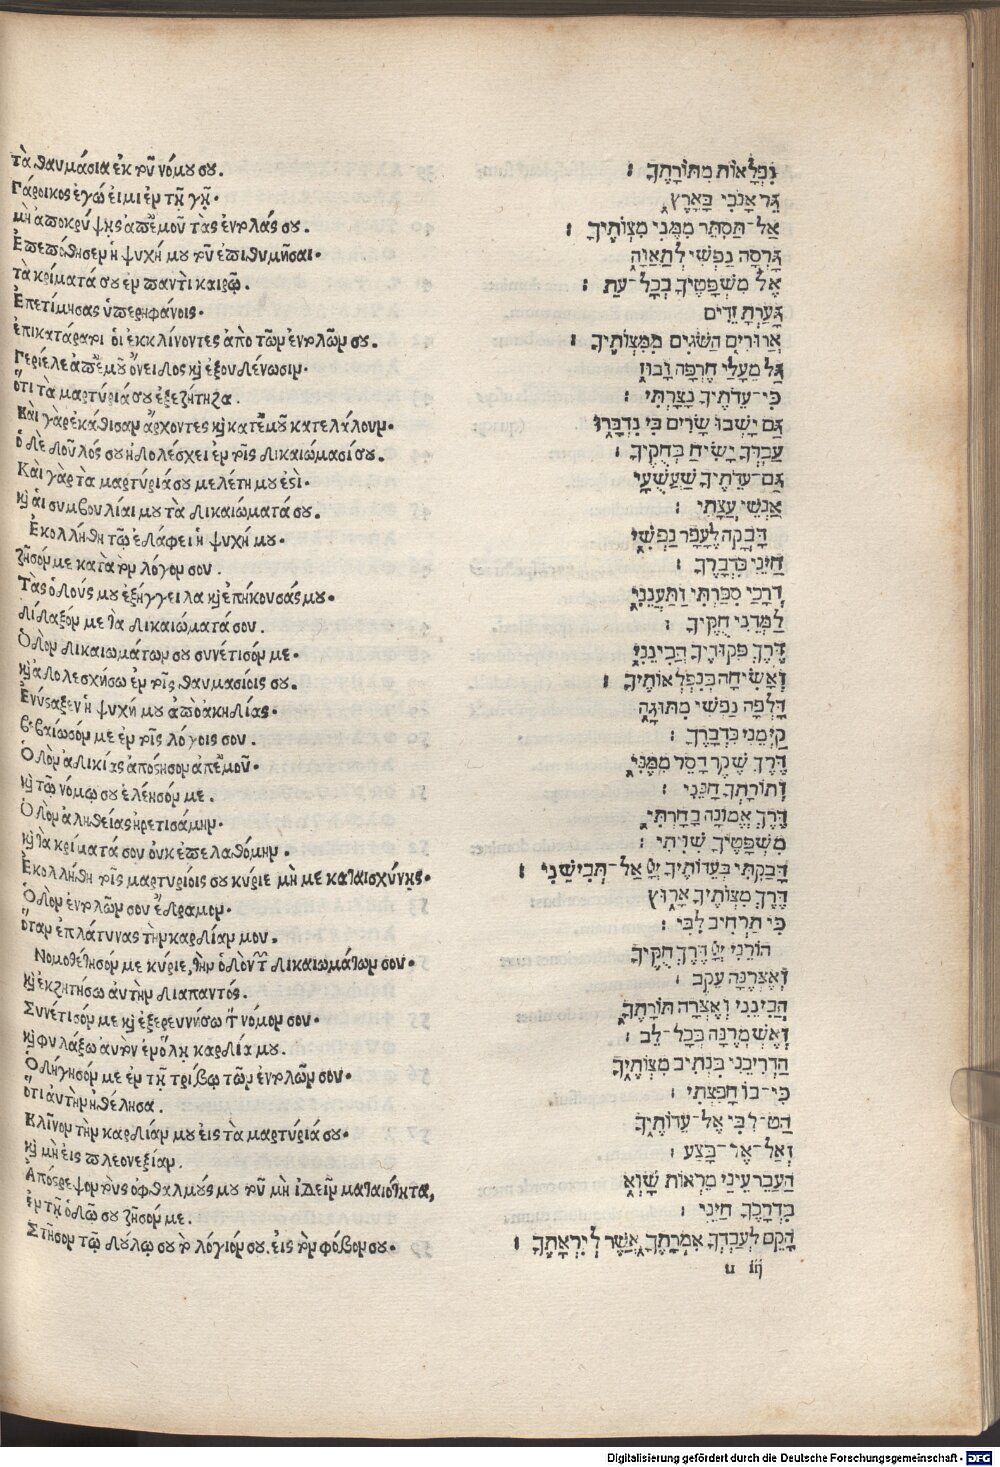 τὰ θαυμάσια ἐκ τοῦ νόμου σου.
Πάροικος ἐγώ ἐιμι ἐν τῇ γῇ·
μὴ ἀποκρύψῃς ἀπ' ἐμοῦ τὰς ἐντολάς σου.
Ἐπεπόθησεν ἡ ψυχή μου τοῦ ἐπιθυμῆσαι·
τὰ κρίματά σου ἐν παντὶ καιρῷ.
Ἐπετίμησας ὑπερηφάνοις·
ἐπικατάρατοι ὁι ἐκκλίνοντες ἀπὸ τῶν ἐντολῶν σου.
Περίελε ἀπ' ἐμοῦ ὄνειδος καὶ ἐξουδένωσιν·
ὅτι τὰ μαρτύριά σου ἐξεζήτησα.
Καὶ γὰρ ἐκάθισαν ἄρχοντες καὶ κατ' ἐμοῦ κατελάλουν·
ὁ δὲ δοῦλός σου ἠδολέσχει ἐν τοῖς δικαιώμασί σου.
Καὶ γὰρ τὰ μαρτύριά σου μελέτη μου ἐστι·
καὶ ἁι συμβουλίαι μου τὰ δικαιώματά σου.
Ἐκολλήθη τῷ ἐδάφει ἡ ψυχή μου·
ζῆσόν με κατὰ τὸν λόγον σου.
Τὰς ὁδούς μου ἐξήγγειλα καὶ ἐπήκουσάς μου·
δίδαξόν με τὰ δικαιώματά σου.
Ὁδὸν δικαιωμάτων σου συνέτισόν με·
καὶ ἀδολεσχήσω ἐν τοῖς θαυμασίοις σου.
Ἐνύσταξεν ἡ ψυχή μου ἀπὸ ἀκηδίας·
βεβαίωσόν με ἐν τοῖς λόγοις σου.
Ὁδὸν ἀδικίας ἀπόστησον ἀπ' ἐμοῦ·
καὶ τῷ νόμῳ σου ἐλέησόν με.
Ὁδὸν ἀληθείας ἡρετισάμην·
καὶ τὰ κρίματά σου ὀυκ ἐπελαθόμην.
Ἐκολλήθην τοῖς μαρτυρίοις σου κύριε μὴ με καταισχύνῃς·
Ὁδὸν ἐντολῶν σου ἔδραμον·
ὅταν ἐπλάτυνας τὴν καρδίαν μου.
Νομοθέτησόν με κύριε, τὴν ὁδὸν τῶν δικαιωμάτων σου·
καὶ ἐκζητήσω ἀυτὴν διαπαντός.
Συνέτισόν με καὶ ἐξερευνήσω τὸν νόμον σου·
καὶ φυλάξω ἀυτὸν ἐν ὅλῃ καρδίᾳ μου.
Ὁδήγησόν με ἐν τῇ τρίβῳ τῶν ἐντολῶν σου·
ὅτι ἀυτὴν ἠθέλησα.
Κλῖνον τὴν καρδίαν μου εἰς τὰ μαρτύριά σου·
καὶ μὴ εἰς πλεονεξίαν.
Ἀπόστρεψον τοὺς ὀφθαλμούς μου τοῦ μὴ ἰδεῖν ματαιότητα,
ἐν τῇ ὁδῷ σου ζῆσόν με.
Στῆσον τῷ δούλῳ σου τὸ λόγιόν σου, εἰς τὸν φόβον σου·
נִפְלָאוֹת מִתּוֹרָתֶךָ :
גֵּר אָנֹכִי בָּאָרֶץ
אַל־תַּסְתֵּר מִמֶּנִּי מִצְוֹתֶיךָ :
גָּרְסָה נַפְשִׁי לְתַאֲוָה
אֶל מִשְׁפָּטֶיךָ בְכָל־עֵת :
גָּעַרְתָּ זֵדִים
אֲרוּרִים הַשֹּׁגִים מִמִּצְוֹתֶיךָ :
גַּל מֵעָלַי חֶרְפָּה וָבוּז
כִּי־עֵדֹתֶיךָ נָצָרְתִּי :
גַּם יָשְׁבוּ שָׂרִים בִּי נִדְבָּרוּ
עַבְדְּךָ יָשִׂיחַ בְּחֻקֶּיךָ :
גַּם־עֵדֹתֶיךָ שַׁעֲשֻׁעָי
אַנְשֵׁי עֲצָתִי :
דָּבְקָה לֶעָפָר נַפְשִׁי
חַיֵּנִי כִּדְבָרֶךָ :
דְּרָכַי סִפַּרְתִּי וַתַּעֲנֵנִי
לַמְּדֵנִי חֻקֶּיךָ :
דֶּרֶךְ פִּקּוּדֶיךָ הֲבִינֵנִי
וְאָשִׂיחָה בְּנִפְלְאוֹתֶיךָ :
דָּלְפָה נַפְשִׁי מִתּוּגָה
קַיְּמֵנִי כִּדְבָרֶךָ :
דֶּרֶךְ שֶׁקֶר הָסֵר מִמֶּנִּי
וְתוֹרָתְךָ חָנֵּנִי :
דֶּרֶךְ אֱמוּנָה בָחָרְתִּי
מִשְׁפָּטֶיךָ שִׁוִּיתִי :
דָּבַקְתִּי בְעֵדְוֹתֶיךָ יְיָ אַל־תְּבִישֵׁנִי :
דֶּרֶךְ מִצְוֹתֶיךָ אָרוּץ
כִּי תַרְחִיב לִבִּי :
הוֹרֵנִי יְיָ דֶּרֶךְ חֻקֶּיךָ
וְאֶצְּרֶנָּה עֵקֶב :
הֲבִינֵנִי וְאֶצְּרָה תוֹרָתֶךָ
וְאֶשְׁמְרֶנָּה בְכָל־לֵב :
הַדְרִיכֵנִי בִּנְתִיב מִצְוֹתֶיךָ
כִּי־בוֹ חָפָצְתִּי :
הַט־לִבִּי אֶל־עֵדְוֹתֶיךָ
וְאַל־אֶל־בָּצַע :
הַעֲבֵר עֵינַי מֵרְאוֹת שָׁוְא
בִּדְרָכֶךָ חַיֵּנִי :
הָקֵם לְעַבְדְּךָ אִמְרָתֶךָ אֲשֶׁר לְיִרְאָתֶךָ :
u iij
Digitalisierung gefördert durch die Deutsche Forschungsgemeinschaft - DFG